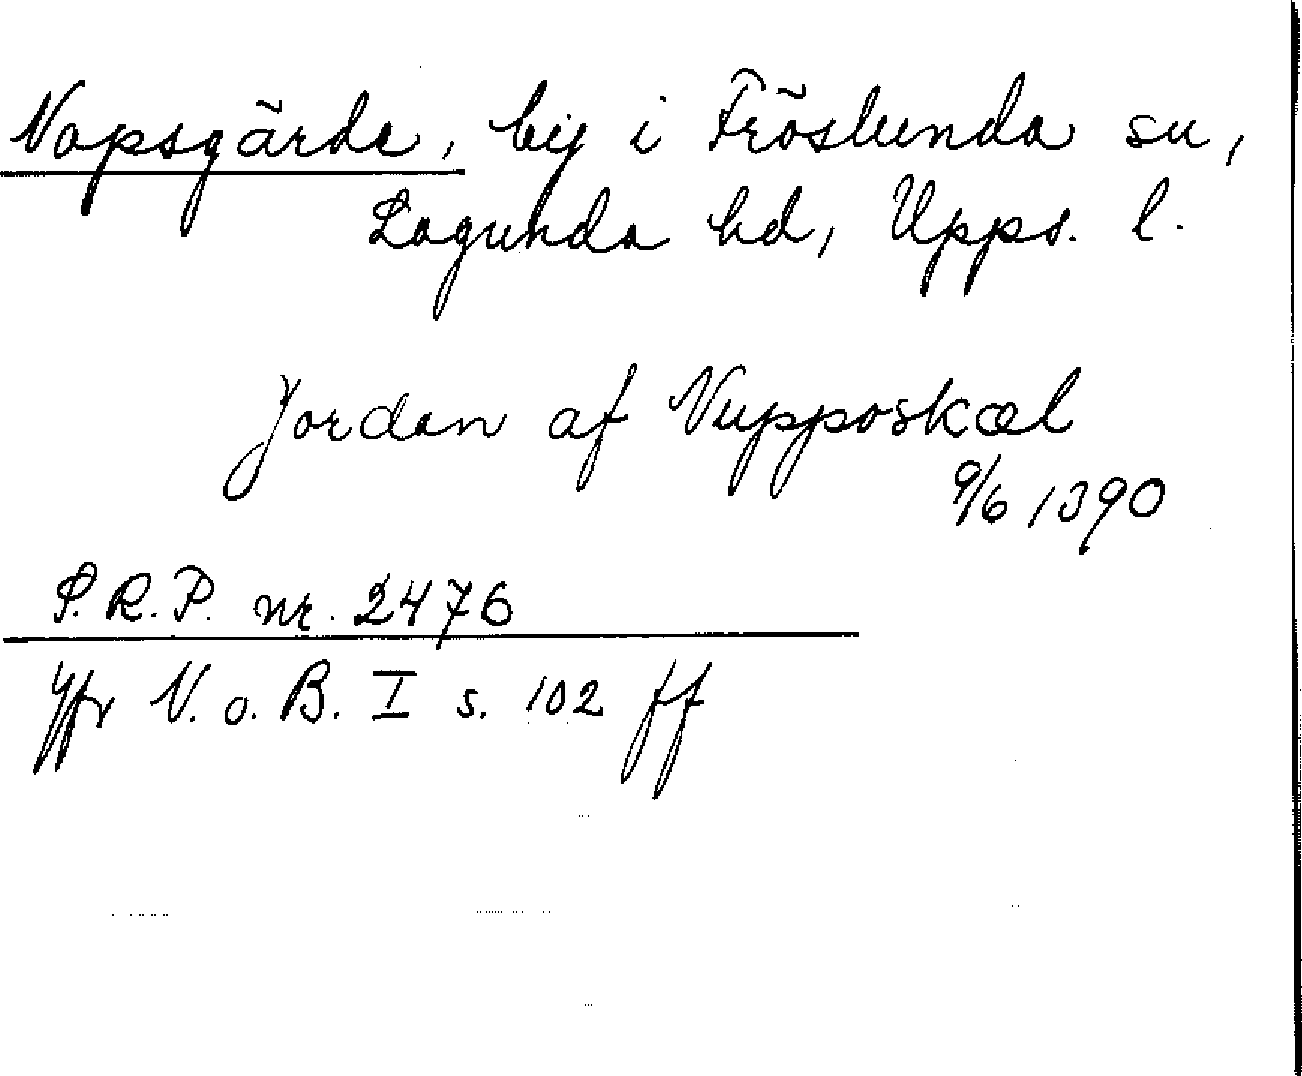 Nopsgärde, by i Fröslunda sn,
Lagunda hd, Upps. l.
Jordan af Nupposkæl
9/6 1390
S.R.P. nr. 2476
Jfr N. o. B. I s. 102 ff